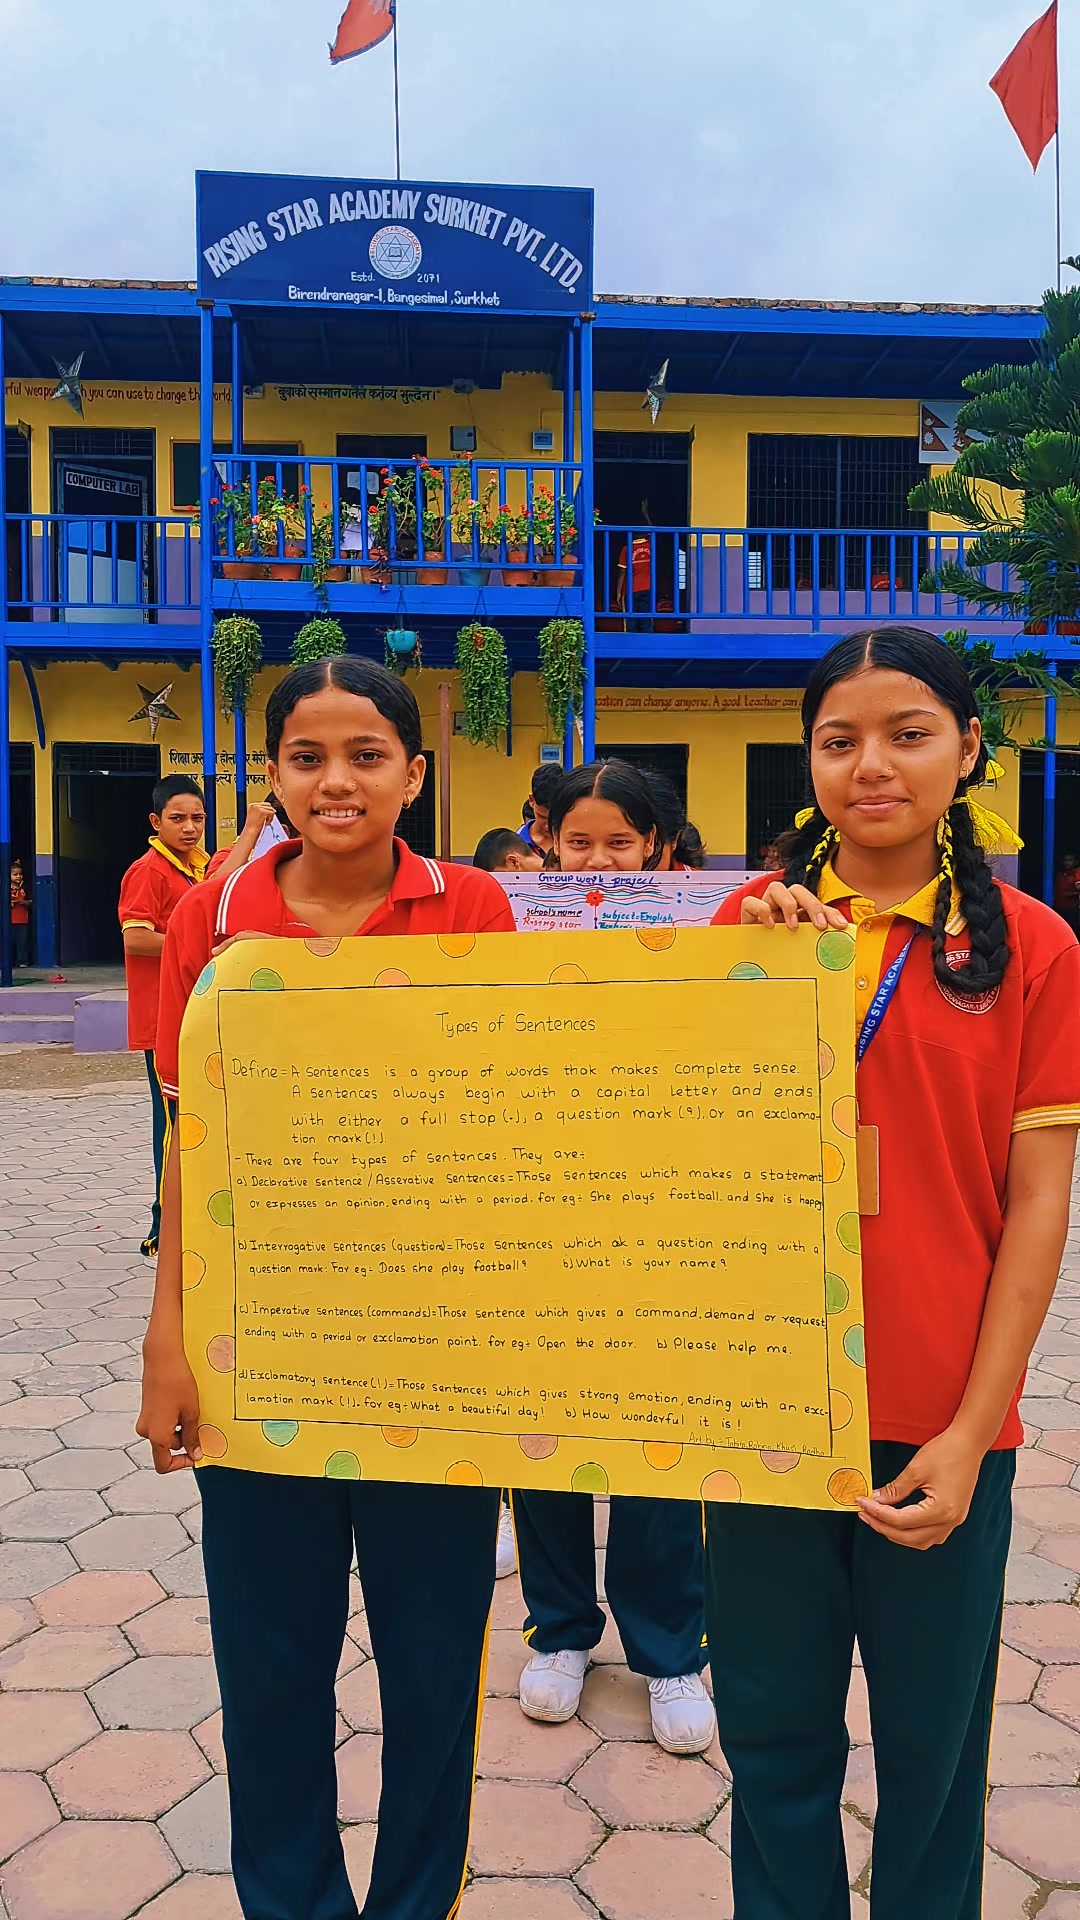 RISING STAR ACADEMY SURKHET PVT. LTD.
RISING STAR ACADEMY
Estd. 2071
Birendranagar-1, Bangesimal, Surkhet
you can use to change the world.
"बुवाको सम्मान गर्नेले कर्तव्य भुल्दैन।"
COMPUTER LAB
cation can change anyone. A good teacher can
शिक्षा
मेरी
Group work project
school's name
Rising star
subject:English
RISING STAR ACADE
Types of Sentences
Define = A sentences is a group of words thak makes complete sense.
A sentences always begin with a capital letter and ends
with either a full stop (.), a question mark (?), or an exclama-
tion mark (!).
- There are four types of sentences. They are:
a) Declarative sentence / Asserative Sentences = Those sentences which makes a statement
or expresses an opinion, ending with a period. for eg:- She plays football. and She is happy
b) Interrogative sentences (questions) = Those sentences which ak a question ending with a
question mark: For eg:- Does she play football? b) What is your name?
c) Imperative sentences (commands) = Those sentence which gives a command, demand or request
ending with a period or exclamation point. for eg:- Open the door. b) Please help me.
d) Exclamatory sentence (!) = Those sentences which gives strong emotion, ending with an exc-
lamation mark (!). for eg:- What a beautiful day! b) How wonderful it is!
Art by:- Khusi, Radha